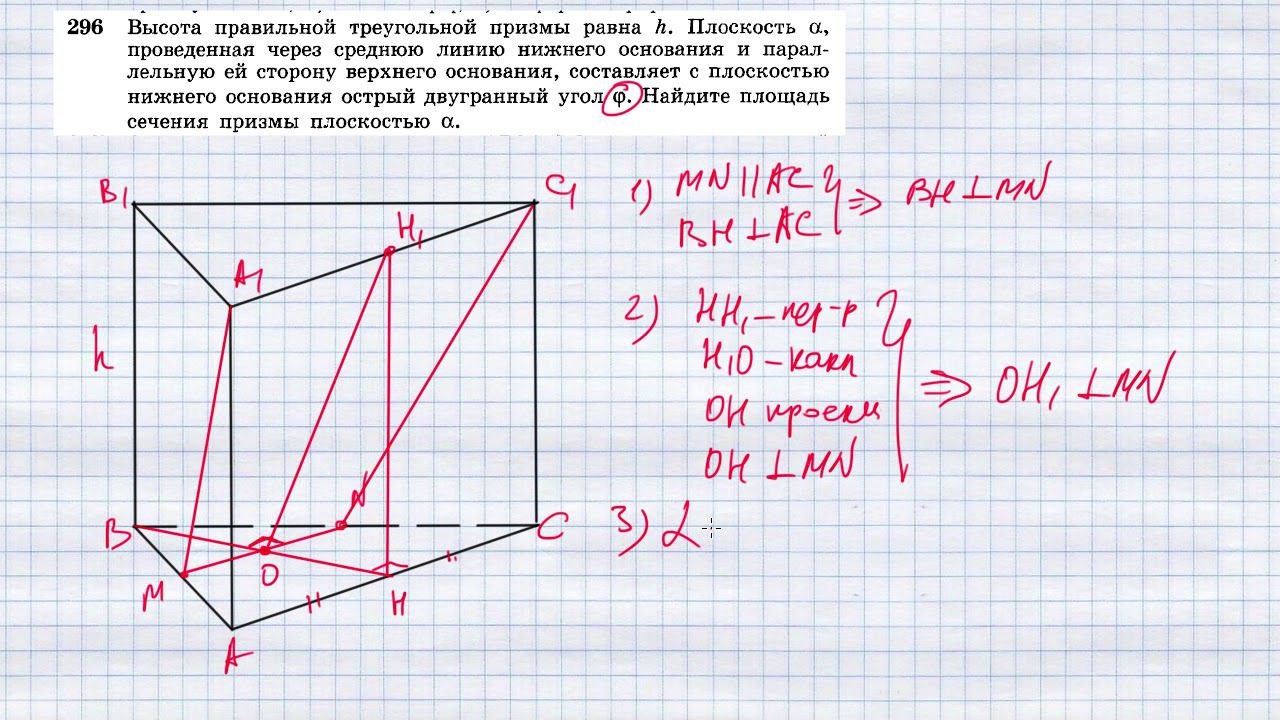 296 Высота правильной треугольной призмы равна h. Плоскость α,
проведенная через среднюю линию нижнего основания и парал-
лельную ей сторону верхнего основания, составляет с плоскостью
нижнего основания острый двугранный угол φ. Найдите площадь
сечения призмы плоскостью α.
B₁
C₁
H₁
A₁
h
B
N
C
M
O
H
A
1) MN || AC
BH ⊥ AC
} ⇒ BH ⊥ MN
2) HH₁ – пер-р
H₁O – накл
OH проекц
OH ⊥ MN
} ⇒ OH₁ ⊥ MN
3) ∠